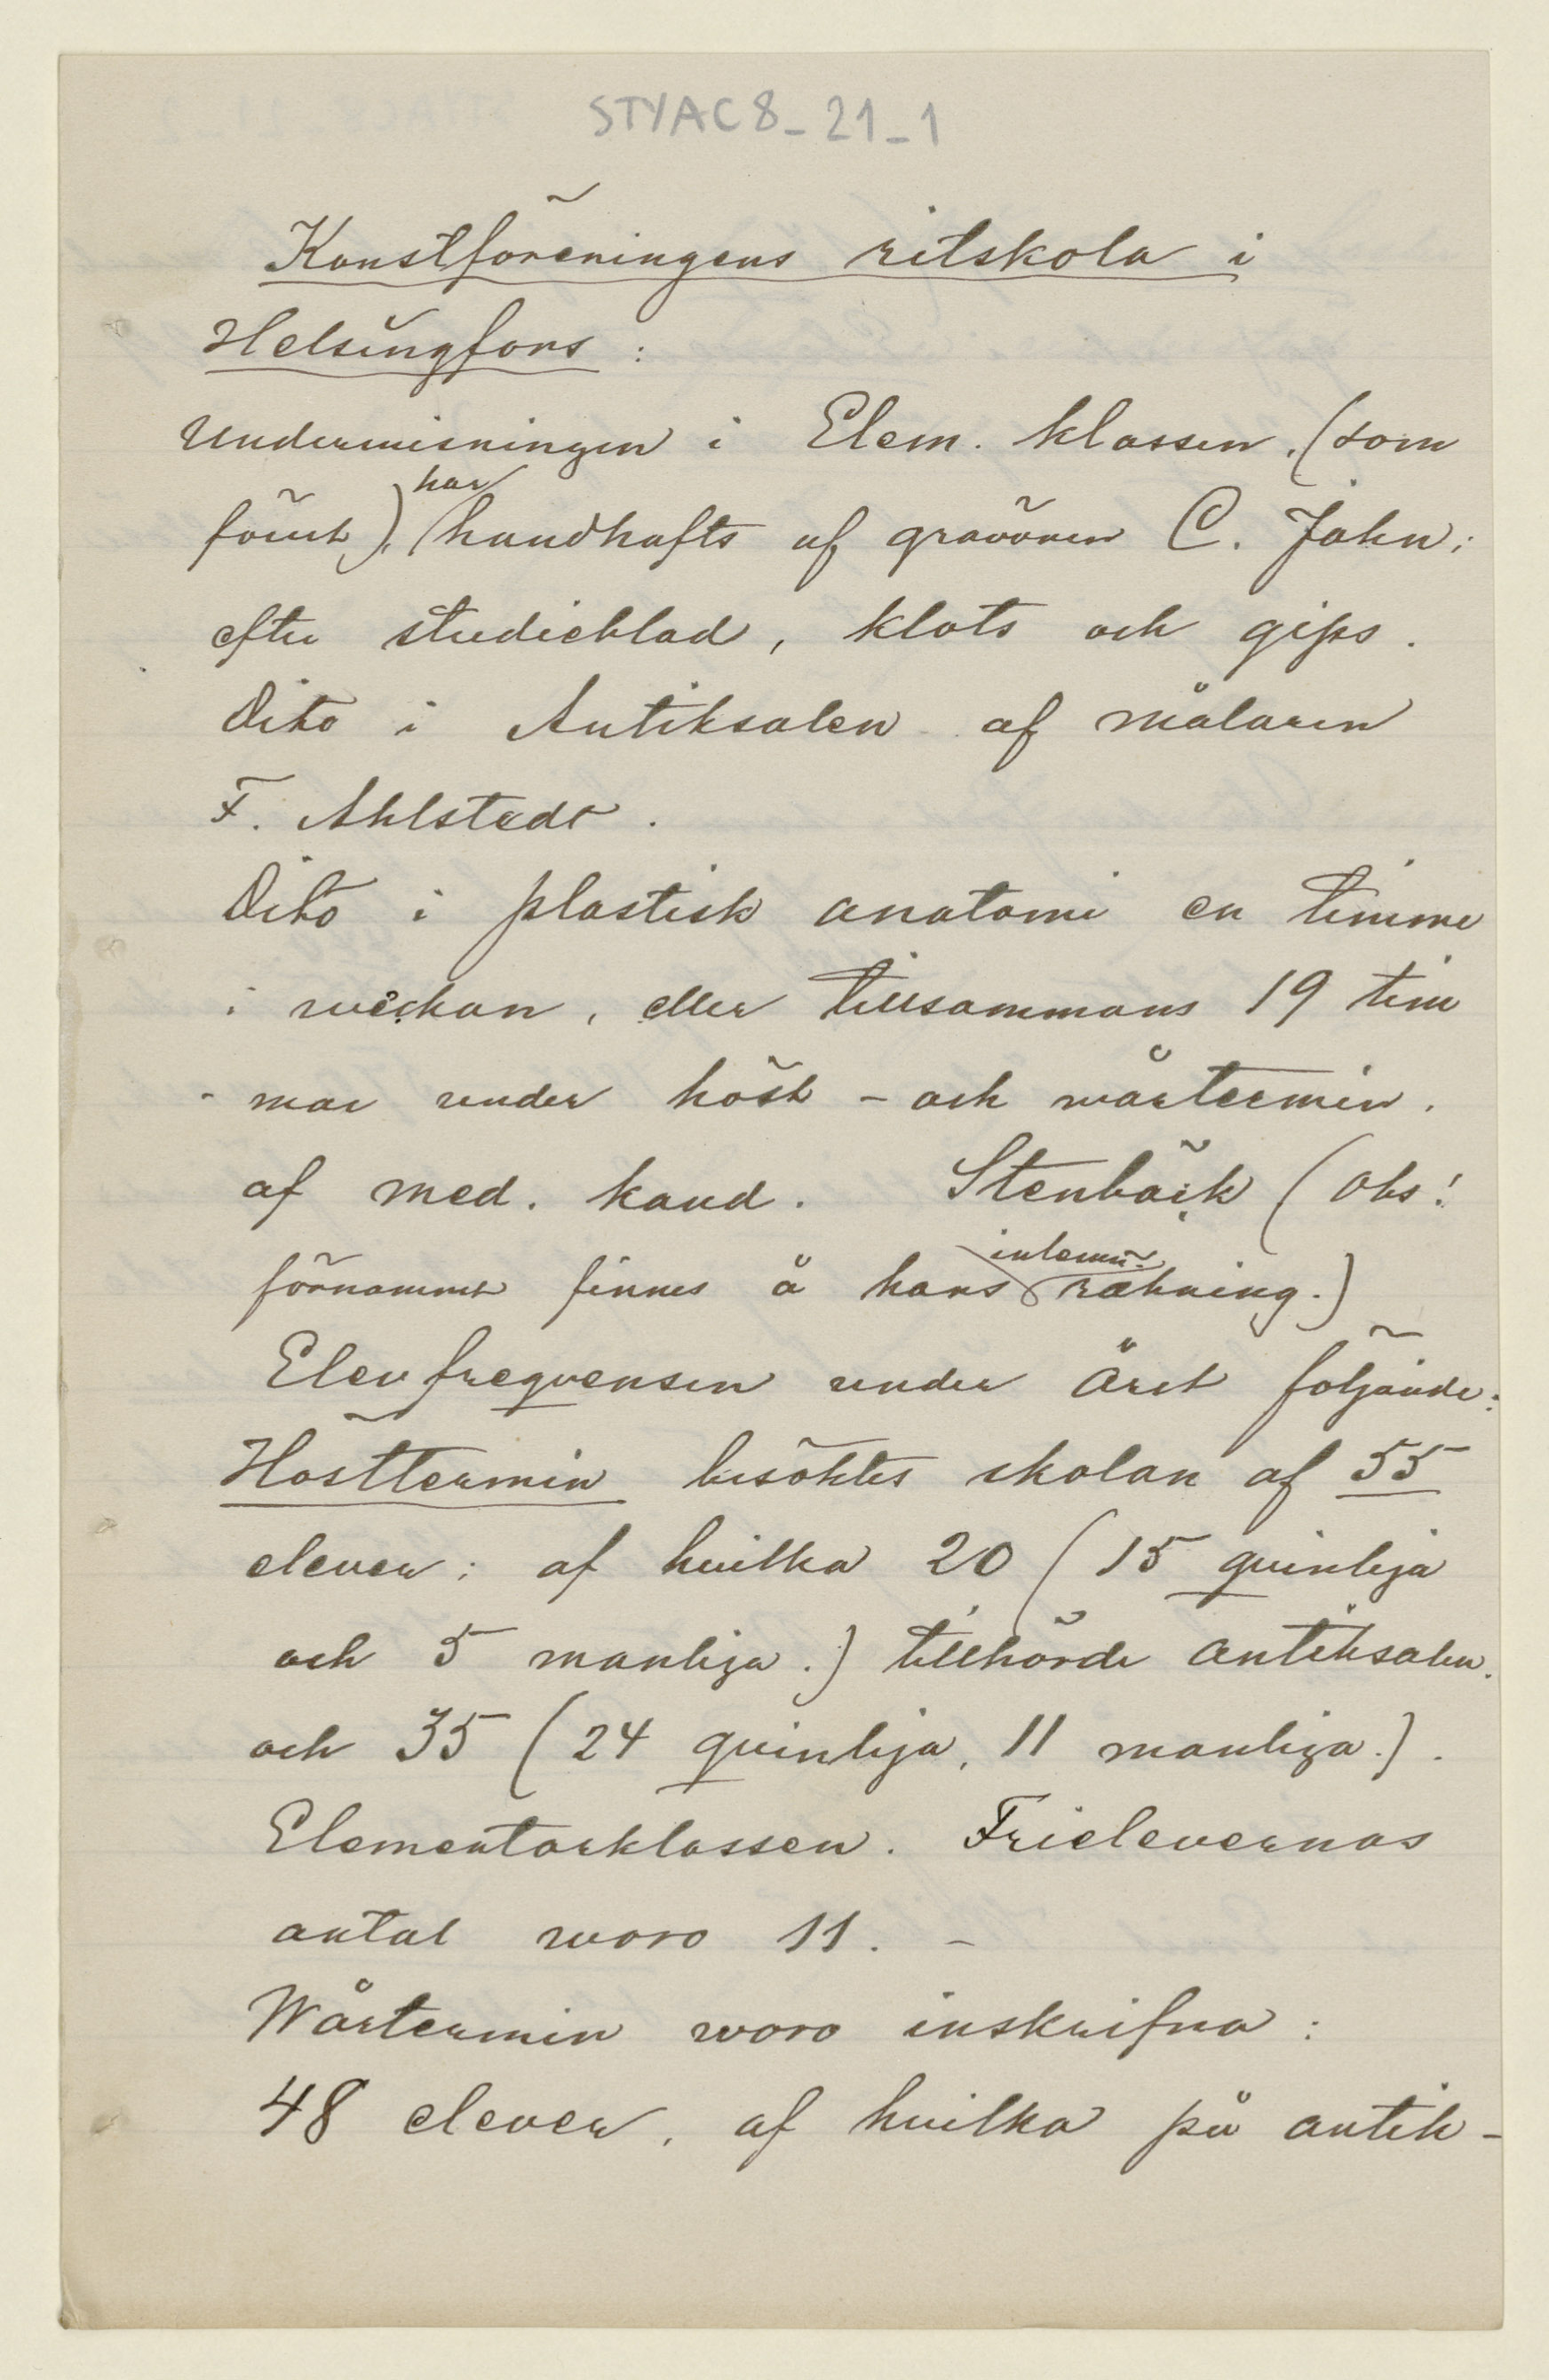 STYAC8_21_1
Konstföreningens ritskola i
Helsingfors :
Undervisningen i Elem. klassen, (som
förut), har handhafts af gravören C. Jahn;
efter studieblad, klots och gips.
Dito i Antiksalen af målaren
F. Ahlstedt.
Dito i plastisk anatomi en timme
i veckan, eller tillsammans 19 tim
- mar under höst - och wårtermin.
af med. kand. Stenbäck (Obs!
förnamnet finnes å hans inlemn: räkning.)
Elevfreqvensen under året följande:
Hösttermin besöktes skolan af 55
elever; af hvilka 20 (15 qvinliga
och 5 manliga.) tillhörde antiksalen.
och 35 (24 qvinliga, 11 manliga.).
Elementarklassen. Frielevernas
antal woro 11. -
Wårtermin woro inskrifna :
48 elever, af hvilka på antik-